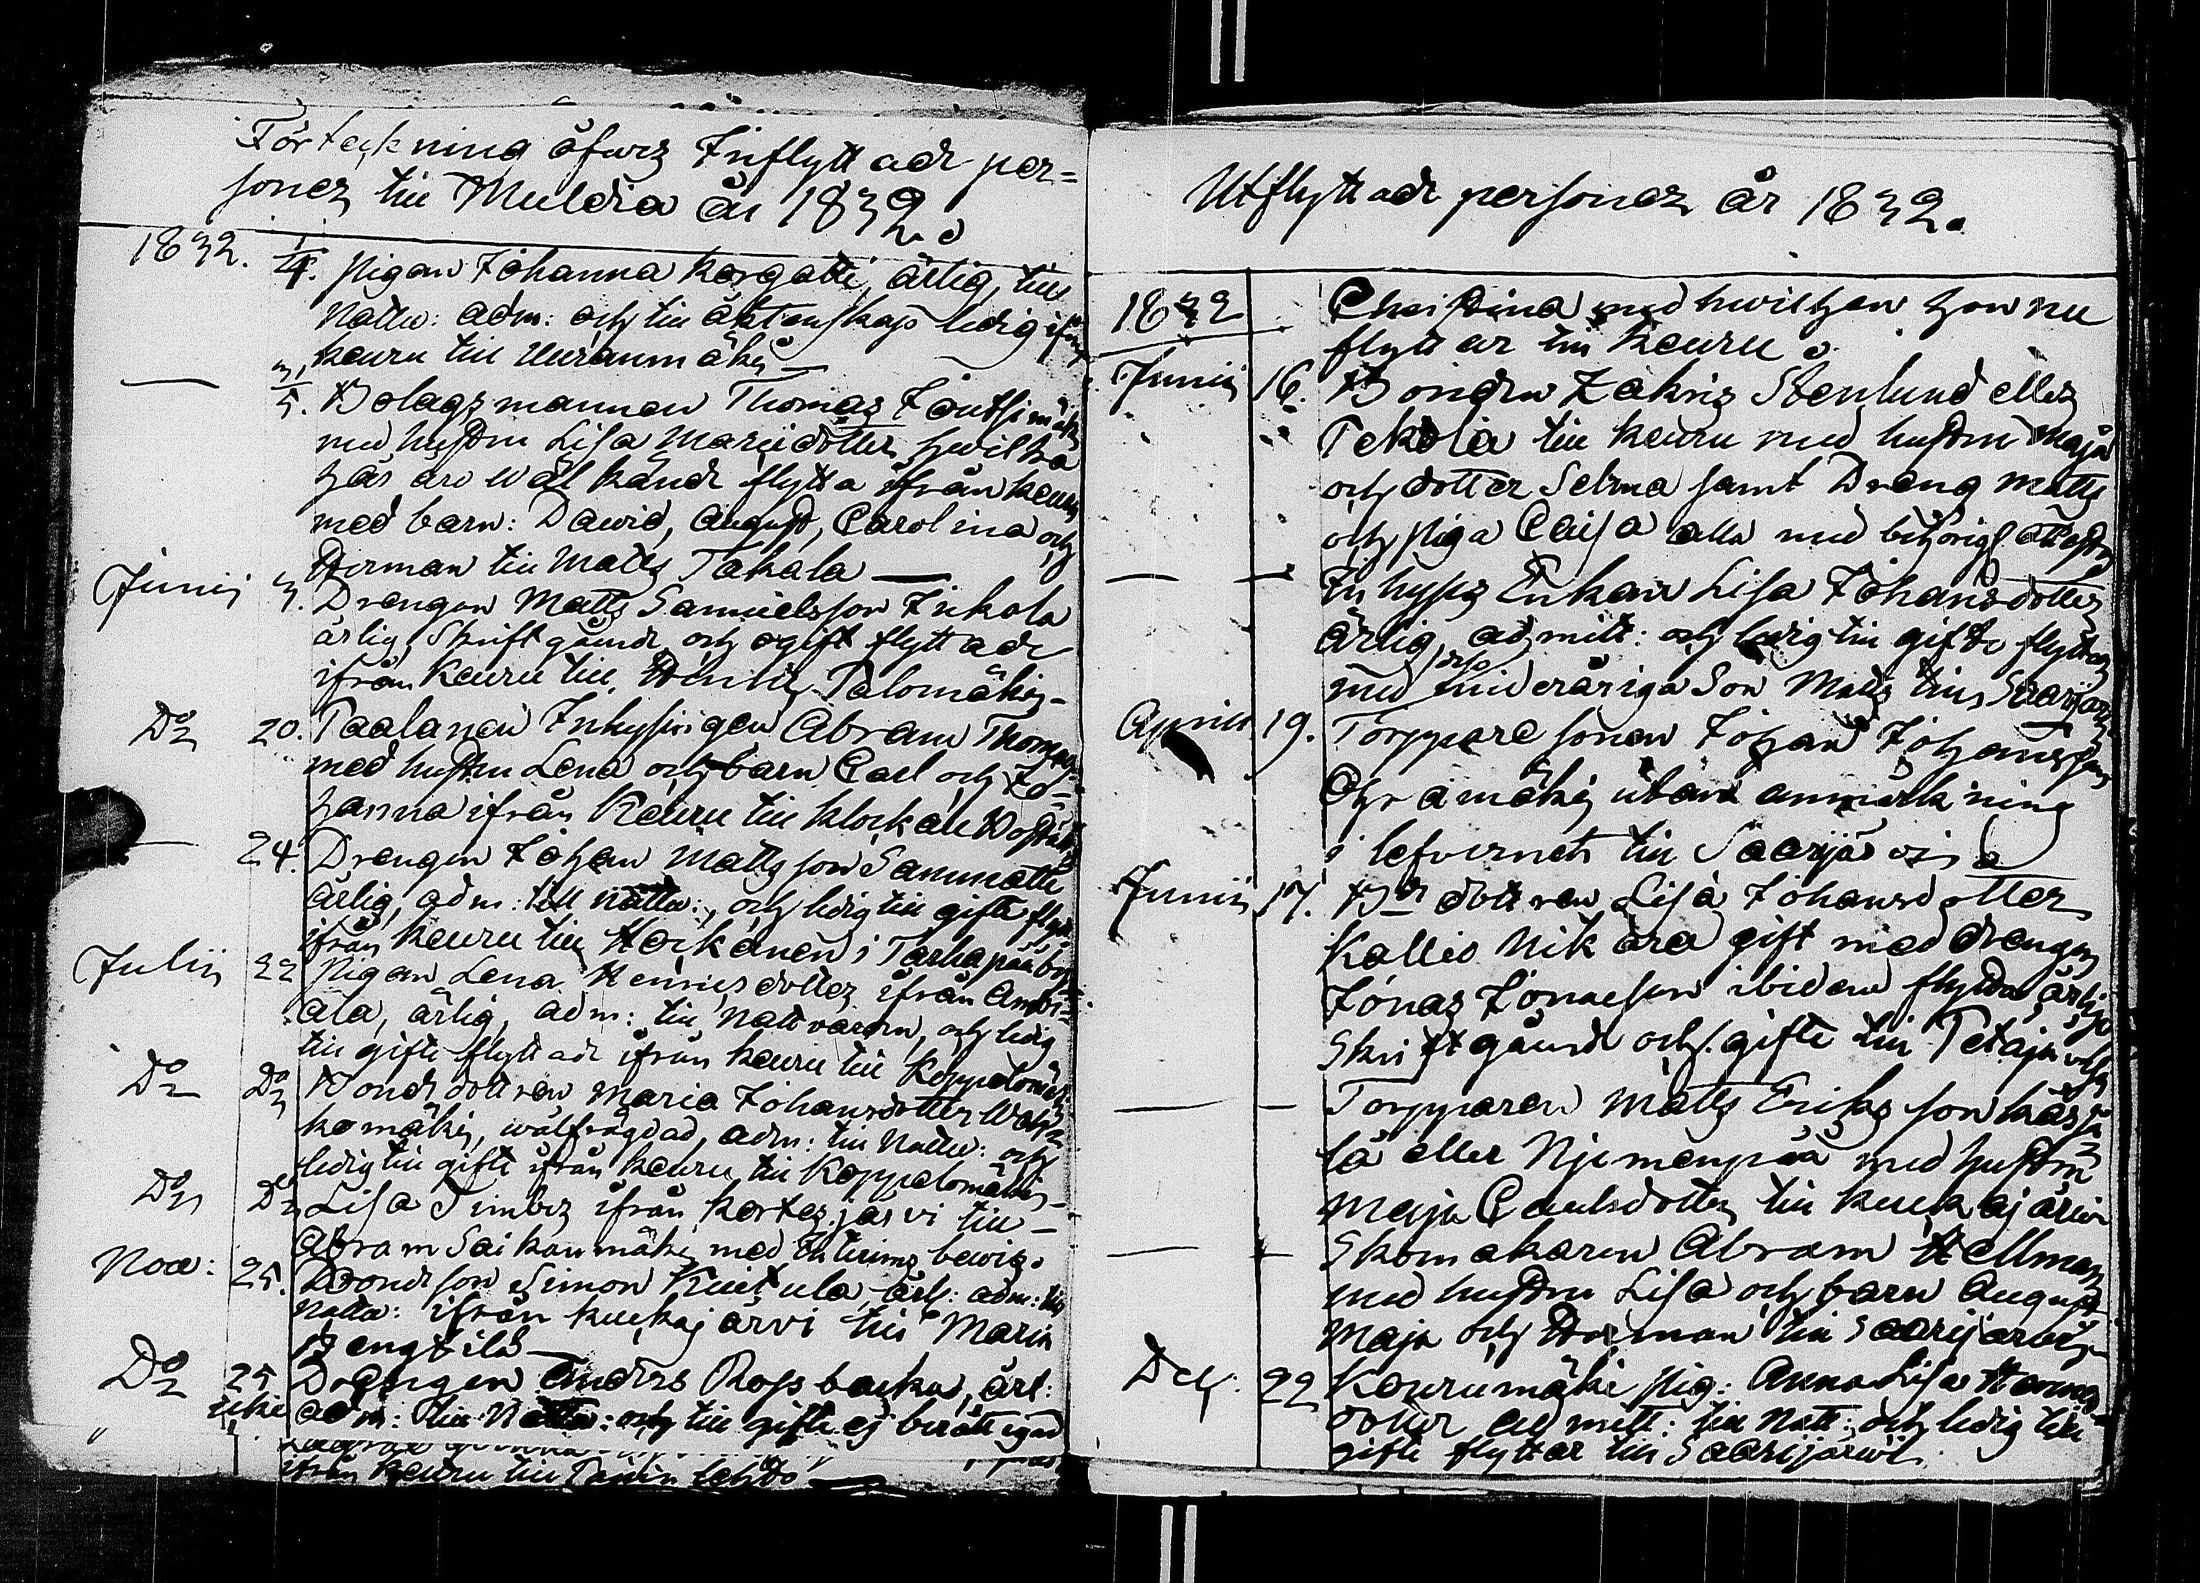 Förteckning öfwer Inflyttade per=
soner till Muldia år 1832.
1832. 1/4. Pigan Johanna Korgatti, ärlig, till
Nattw: adm: och till äktenskap ledig ifrån
Keuru till Uuraunmäki —
— 3/5. Bolagsmannen Thomas Joutsimäki
med hustru Lisa Mariedotter hwilka
här äro wäl kände flytta ifrån Keuru
med barn: Dawid, August, Carolina och
Herman till Matts Takala —
Junii 3. Drengen Matts Samuelsson Inkala
ärlig, Skriftgånde och ogift flyttade
ifrån Keuru till Henrik Talomäki —
Do 20. Taalanen Inhysingen Abram Thomas
med hustru Lena och barn Carl och Jo-
hanna ifrån Keuru till Klockare Bostället
— 24. Drengen Johan Mattsson Sammatti
ärlig, adm: till nattw:, och ledig till gifte flytt
ifrån Keuru till Hockanen i Tarhapää by
Julii 22 Pigan Lena Henricsdotter ifrån Ambi-
ala, ärlig, adm: till Nattvarden, och ledig
till gifte flyttade ifrån Keuru till Koppelomäki
Do Do Bondedottren Maria Johansdotter
komäki, wälfrägdad, adm: till Nattw: och
ledig till gifte ifrån Keuru till Koppelomäki —
Do Do Lisa Simbez ifrån Kortesjärvi till —
Abram Saikanmäki med Interims bewis.
Nov: 25. Bondeson Simon Kuitula, ärl: adm: till
Nattw: ifrån Kuckajärvi till Maria
Bengtilä —
Do 25 Drengen Anders Rossbacka, ärl:
adm: till Nattw: och till gifte ej berättigad
ifrån Keuru till
Utflyttade personer år 1832.
1832 Christina med hwilken hon nu
flyttar till Keuru.
Junii 16. Bonden Zakris Stenlund eller
Tekola till Keuru med hustru Maja
och dotter Selma samt Dreng Matts
och piga Caisa alla med behörigt attest
— — Inhyses Enkan Lisa Johansdotter
ärlig, admitt: och ledig till gifte flyttar
med sin minderåriga Son Matts till Saarijärvi
Aprill 19. Torppare sonen Johan Johansson
Ohramäki utan anmärkning
i lefvernet till Saarijärvi
Junii 17. Bde dottren Lisa Johansdotter
Kallio Nikara gift med drengen
Jonas Jonasson ibidem flytta ärlige
Skriftgånde och gifte till Petäjävesi
— — Torpparen Matts Eriksson Käsjä
lä eller Njemenpää med hustru
Maja Paulsdotter till Kuckajärwi
— — Skomakaren Abram Hellman
med hustru Lisa och barn August
Maja och Herman till Saarijärwi —
Dec: 22 Kourumäki pig: Anna Lisa
dotter admitt: till Natt: och ledig till
gifte flyttar till Saarijärwi.